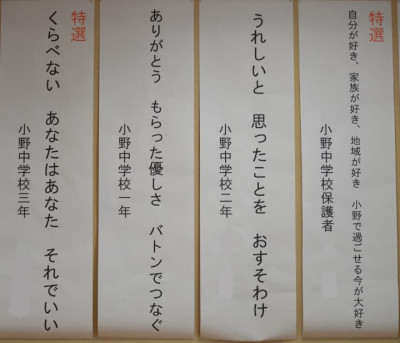 特選
自分が好き、家族が好き、地域が好き　小野で過ごせる今が大好き
小野中学校保護者
うれしいと　思ったことを　おすそわけ
小野中学校二年
ありがとう　もらった優しさ　バトンでつなぐ
小野中学校一年
特選
くらべない　あなたはあなた　それでいい
小野中学校三年